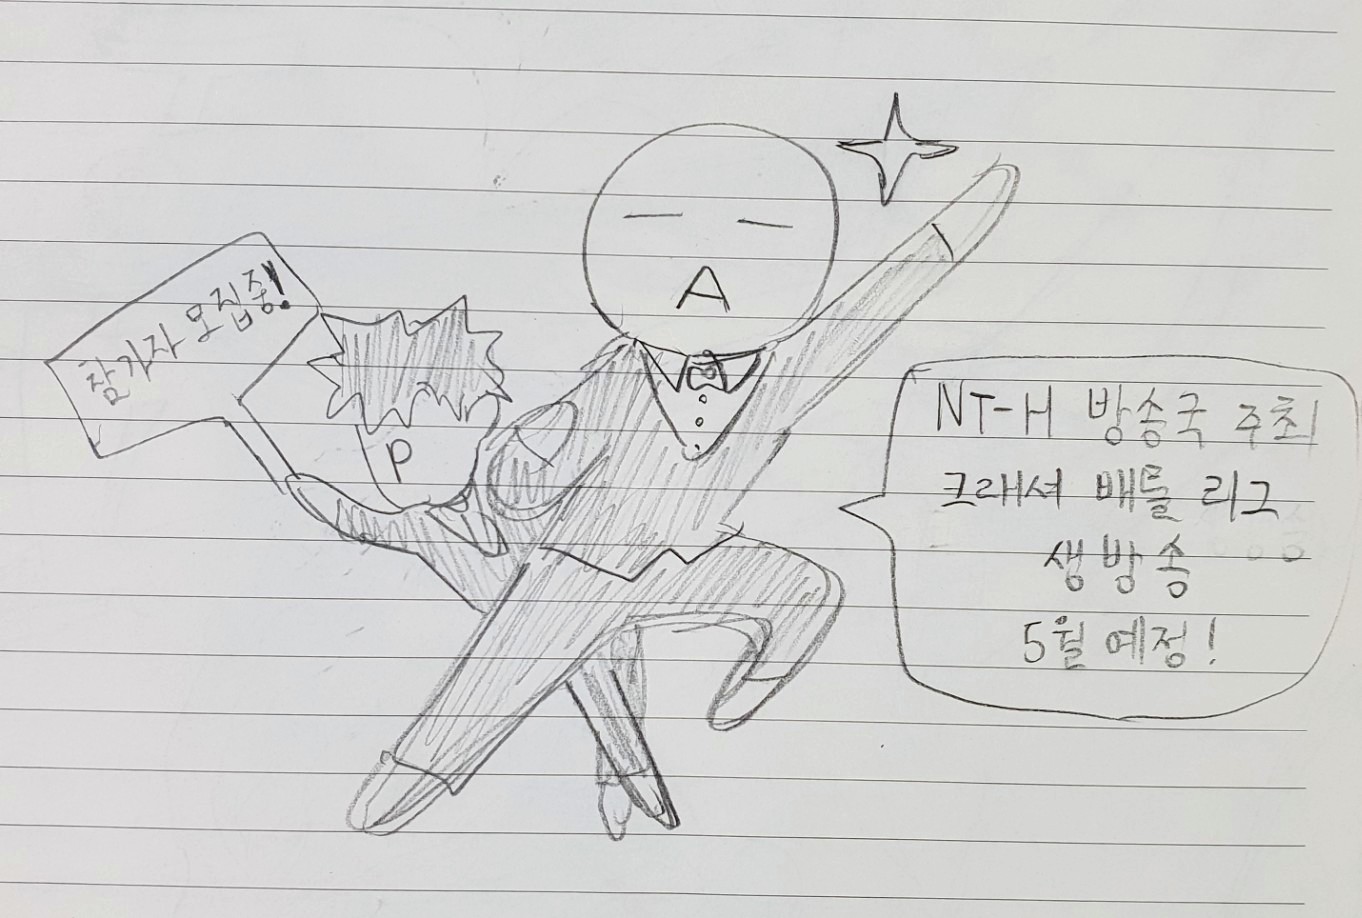 참가자 모집중!
P
A
NT-H 방송국 주최
크래셔 배틀 리그
생방송
5월 예정!